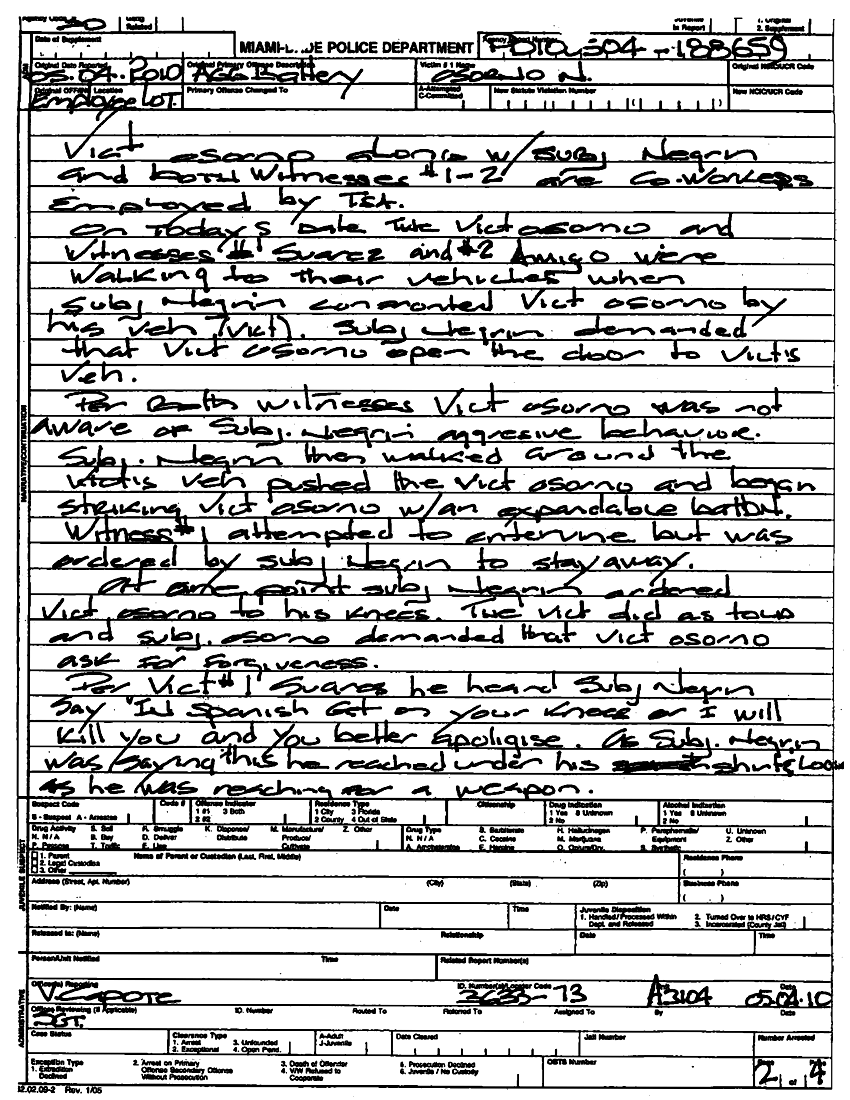 Agency Code
Using
Related
Juvenile
In Report
1. Original
2. Supplement
Date of Supplement
MIAMI-DADE POLICE DEPARTMENT
Agency Report Number
188659
Original Date Reported
05.04.2010
Original Primary Offense Description
AGG Battery
Victim # 1 Name
OSORNO N.
Original NCIC/UCR Code
Original Offense Location
Employee LOT.
Primary Offense Changed To
A-Attempted
C-Committed
New Statute Violation Number
New NCIC/UCR Code
Vict osorno along w/subj Negrin
and both Witnesses #1-2 are co-workers
Employed by TSA.
On Today's Date The Vict osorno and
Witnesses #1 Suarez and #2 Amigo were
walking to their vehicles when
Subj Negrin confronted Vict osorno by
his veh (vict). Subj Negrin demanded
that Vict osorno open the door to victis
veh.
Per Both witnesses Vict osorno was not
Aware of Subj. Negrin aggresive behavior.
Subj. Negrin then walked around the
victis veh pushed the Vict osorno and began
striking Vict osorno w/an expandable batton.
Witness #1 attempted to entervine but was
ordered by subj Negrin to stay away.
At one point subj Negrin ordered
Vict osorno to his knees. The vict did as told
and subj. osorno demanded that Vict osorno
ask for forgiveness.
Per Vict #1 Suares he heard Subj Negrin
Say "In Spanish Get on your Knees or I will
kill you and you better apoligise. As Subj. Negrin
was saying this he reached under his shirt Look
as he was reaching for a weapon.
NARRATIVE/CONTINUATION
Suspect Code
S - Suspect A - Arrestee
Code #
Offense Indicator
1 #1 3 Both
2 #2
Residence Type
1 City 3 Florida
2 County 4 Out of State
Citizenship
Drug Indication
1 Yes 8 Unknown
2 No
Alcohol Indication
1 Yes 8 Unknown
2 No
Drug Activity S. Sell R. Smuggle K. Dispense/ M. Manufacture/ Z. Other
N. N/A B. Buy D. Deliver Distribute Produce/
P. Possess T. Traffic E. Use Cultivate
Drug Type B. Barbiturate H. Hallucinogen P. Paraphernalia/ U. Unknown
N. N/A C. Cocaine M. Marijuana Equipment Z. Other
A. Amphetamine E. Heroine O. Opium/Drv. S. Synthetic
JUVENILE SUSPECT
1. Parent
2. Legal Custodian
3. Other
Name of Parent or Custodian (Last, First, Middle)
Residence Phone
( )
Address (Street, Apt. Number)
(City)
(State)
(Zip)
Business Phone
( )
Notified By: (Name)
Date
Time
Juvenile Disposition
1. Handled/Processed Within
Dept. and Released
2. Turned Over to HRS/CYF
3. Incarcerated (County Jail)
Released to: (Name)
Relationship
Date
Time
Person/Unit Notified
Time
Related Report Number(s)
ADMINISTRATIVE
Officer(s) Reporting
V. CAPOTE
ID. Number(s)/Locator Code
Date
A3104
05.04.10
Officer Reviewing (If Applicable)
SGT.
ID. Number
Routed To
Referred To
Assigned To
By
Date
Case Status
Clearance Type
1. Arrest 3. Unfounded
2. Exceptional 4. Open Pend.
A-Adult
J-Juvenile
Date Cleared
Jail Number
Number Arrested
Exception Type
1. Extradition
Declined
2. Arrest on Primary
Offense Secondary Offense
Without Prosecution
3. Death of Offender
4. V/W Refused to
Cooperate
5. Prosecution Declined
6. Juvenile / No Custody
OBTS Number
Page
2 of 4
12.02.09-2 Rev. 1/05